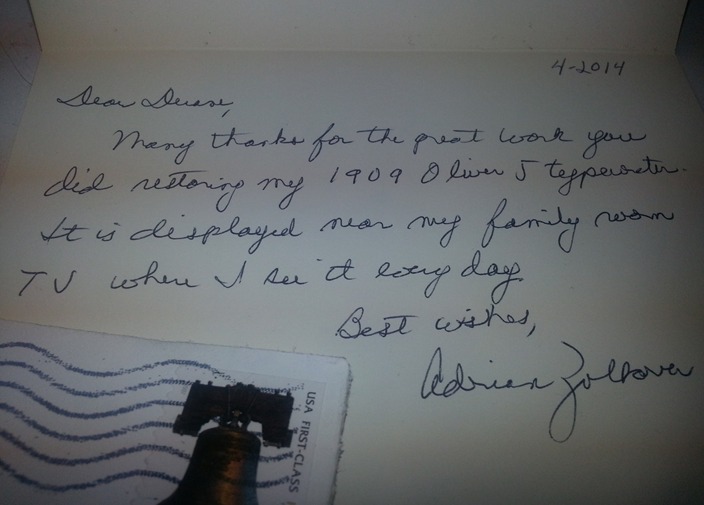 4-2014
Dear Duane,
Many thanks for the great work you
did restoring my 1909 Oliver 5 typewriter.
It is displayed near my family room
TV where I see it every day.
Best wishes,
Adrian
USA FIRST-CLASS